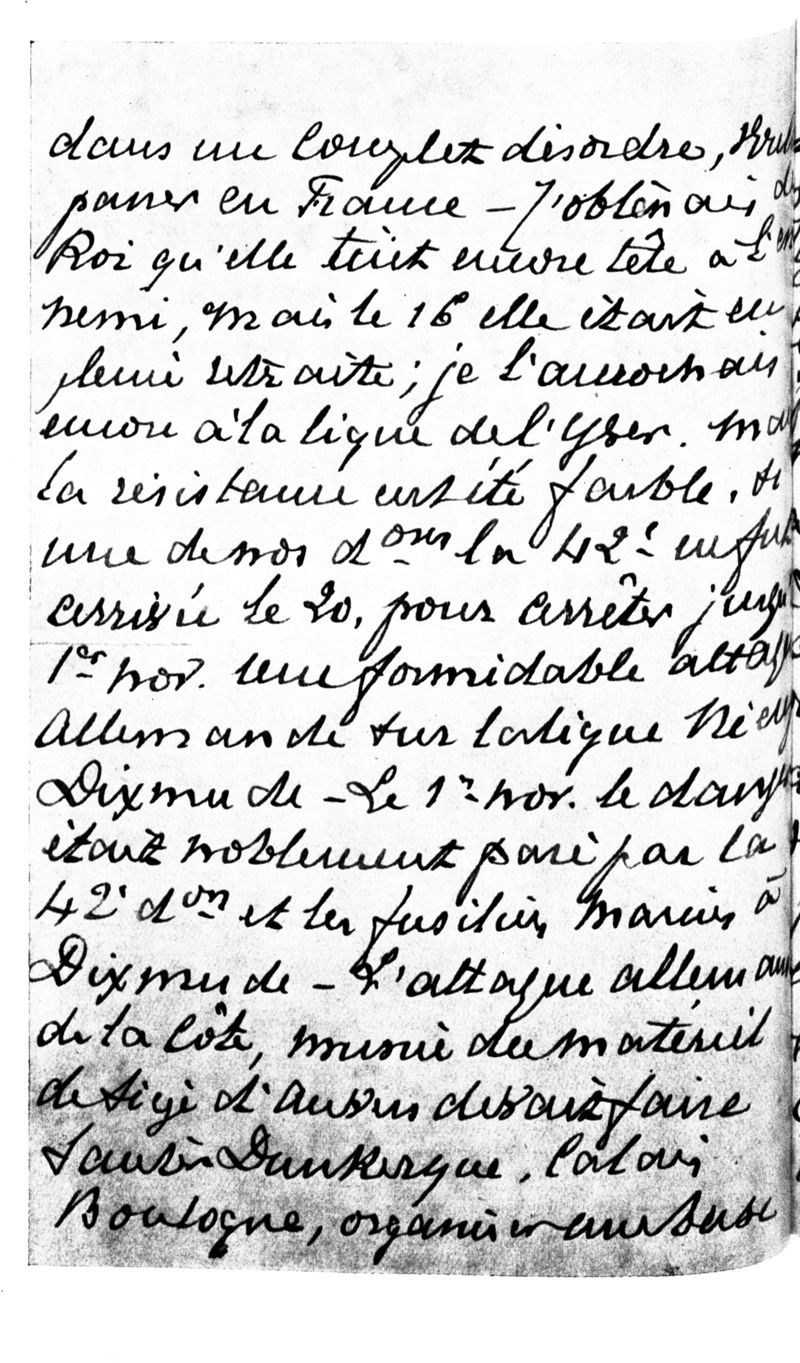 dans un complet désordre, voulait
passer en France – J'obtenais du
Roi qu'elle tint encore tête à l'en
nemi, mais le 16 elle était en
pleine retraite ; je l'accrochais
encore à la ligne de l'Yser. Mais
la résistance eut été faible, si
une de nos dons la 42e ne fut
arrivée le 20, pour arrêter jusqu'
1er nov. une formidable attaque
Allemande sur la ligne Nieup
Dixmude – Le 1er nov. le danger
était noblement paré par la
42e don et les fusiliers marins à
Dixmude – L'attaque allemande
de la côte, munie du matériel
de siège d'Anvers devait faire
sauter Dunkerque, Calais
Boulogne, organiser une base